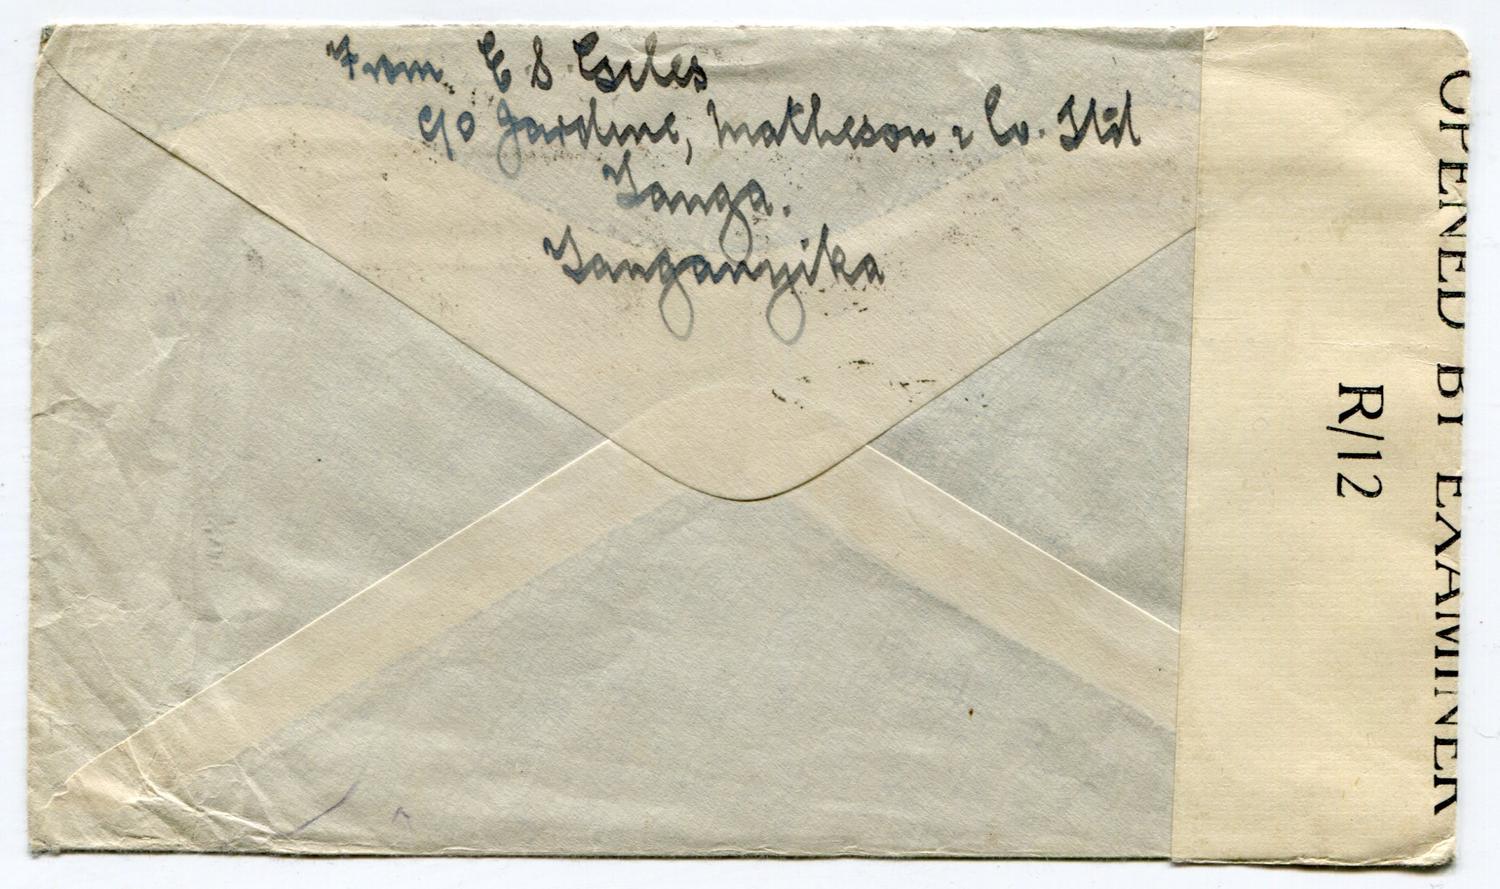 From E S Giles
c/o Jardine, Matheson & Co. Ltd
Tanga.
Tanganyika
OPENED BY EXAMINER
R/12